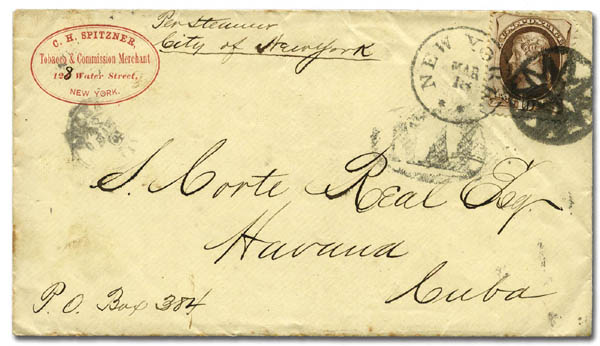 C. H. SPITZNER,
Tobacco & Commission Merchant
128 Water Street,
NEW YORK.
Per Steamer
City of New York
NEW YO
MAR
S. Corte Real Esq.
Havana
Cuba
P. O. Box 384